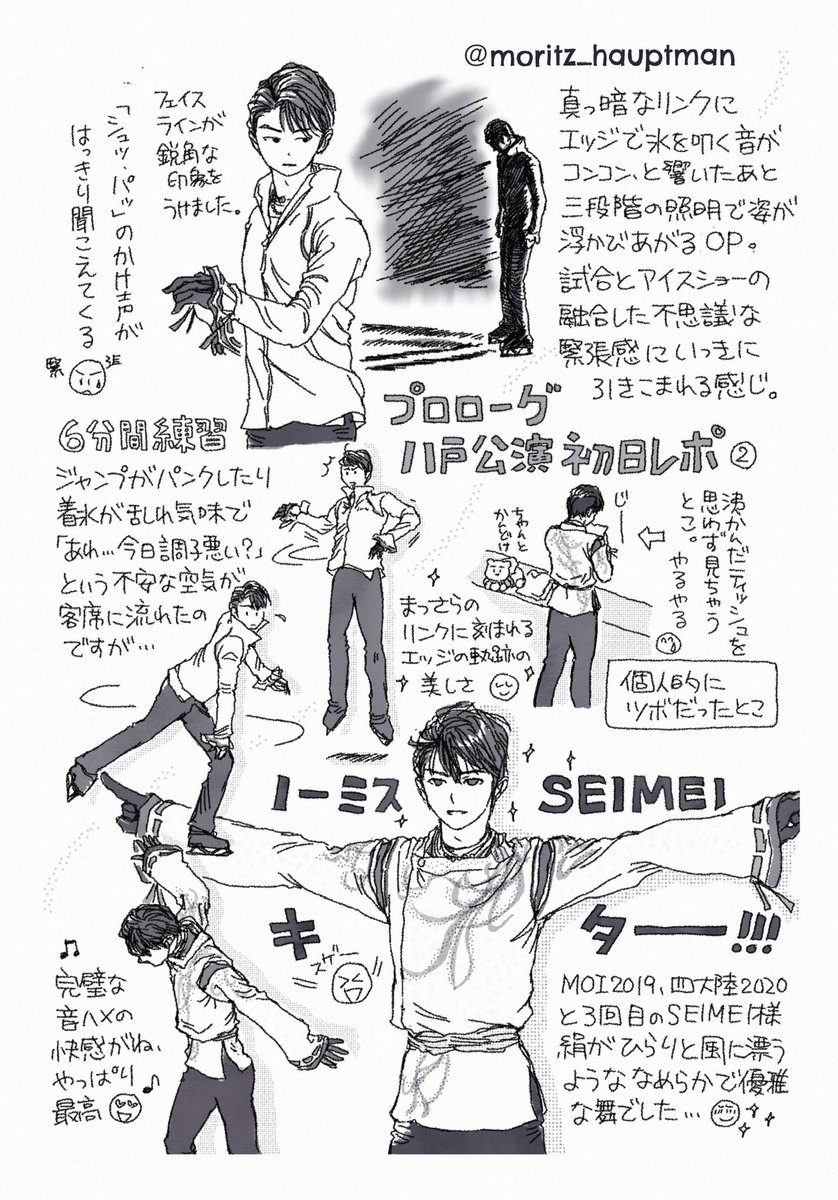 @moritz_hauptman
真っ暗なリンクに
エッジで氷を叩く音が
コンコン、と響いたあと
三段階の照明で姿が
浮かびあがるOP。
試合とアイスショーの
融合した不思議な
緊張感にいっきに
引きこまれる感じ。
フェイス
ラインが
鋭角な
印象を
うけました。
「シュッ・パッ」のかけ声が
はっきり聞こえてくる
緊張
プロローグ
八戸公演初日レポ②
6分間練習
ジャンプがパンクしたり
着氷が乱れ気味で
「あれ…今日調子悪い?」
という不安な空気が
客席に流れたの
ですが…
まっさらの
リンクに刻まれる
エッジの軌跡の
美しさ
ちゃんと
かんどけ
じーっ
沸かんだティッシュを
思わず見ちゃう
とこ。
やるやる
個人的に
ツボだったとこ
ノーミス SEIMEI
キター!!!
スゲー
完璧な
音ハメの
快感がね、
やっぱり
最高
MOI2019、四大陸2020
と3回目のSEIMEI様
絹がひらりと風に漂う
ようななめらかで優雅
な舞でした…